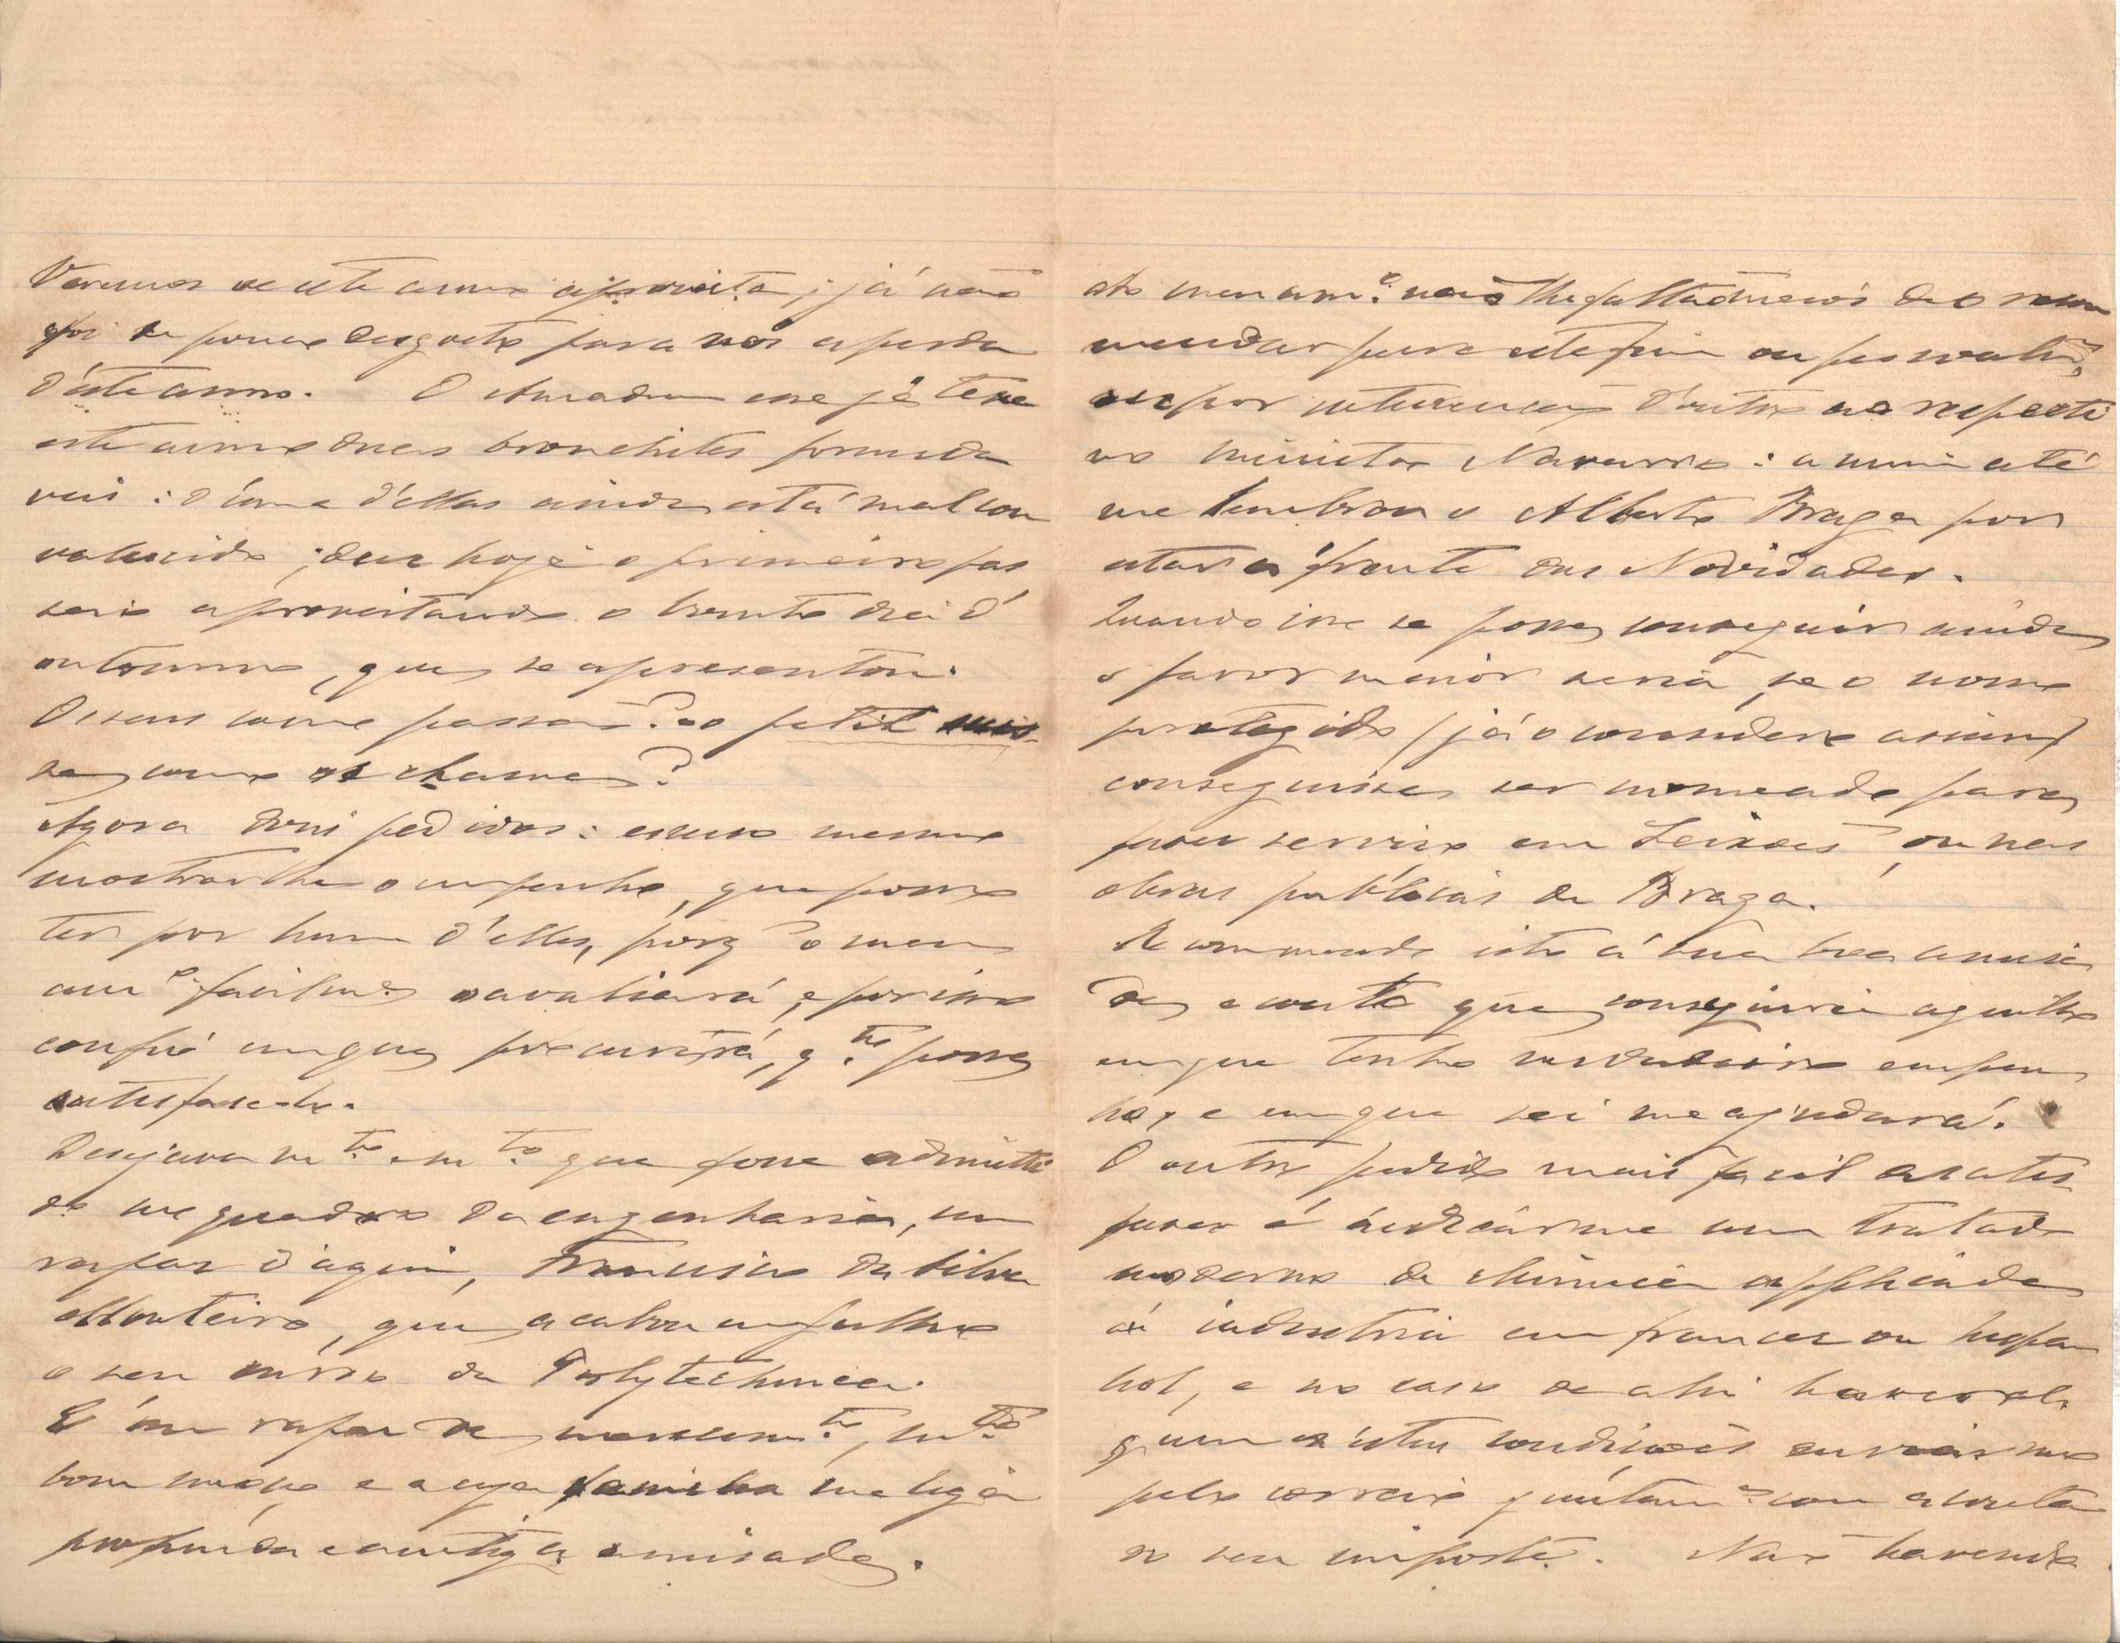 Veremos se este anno aproveita; já não
foi de pouco desgosto para nós a perda
d'este anno. O Amadeu esse já teve
este anno duas bronchites formida
veis: d'uma d'ellas ainda está mal con
valescido; deu hoje o primeiro pas
seio aproveitando o bonito dia d'
outomno, que se apresentou.
Os seus como passam? e o petit
como se chama?
Agora dois pedidos: escuso mesmo
mostrar-lhe o empenho, que posso
ter por hum d'elles, porq o meu
am.º facilm.e o avaliará, e por isso
confio em que procurará, q.to possa
satisfaze-lo.
Desejava m.to e m.to que fosse admitti
do no quadro da engenharia, um
rapaz d'aqui, Francisco da Silva
Monteiro, que acabou em julho
o seu curso da Polytechnica.
E' um rapaz de merecim.to, m.to
bom moço e a cuja familia me liga
profunda e antiga amisade.
Ao meu am.º não lhe faltão meios de o recom
mendar para este fim ou pessoalm.e
ou por intervenção d'outro ao respecti
vo ministro Navarro: a mim até
me lembrou o Alberto Braga por
estar á frente das Novidades.
Quando isso se possa conseguir ainda
o favor maior seria, se o nosso
protegido (já o considero assim)
conseguisse ser nomeado para
fazer serviço em Leixões, ou nas
obras publicas de Braga.
Recommendo isto á sua boa amisa
de, e conto que conseguirá aquillo
em que tenho verdadeiro empen
ho, e em que sei me ajudará.
O outro pedido mais facil a satis
fazer é indicar-me um tratado
moderno de chimica applicada
á industria em francez ou hespan
hol, e no caso de ahi haver al
gum n'estas condições enviar-mo
pelo correio juntam.e com a conta
do seu importe. Não havendo